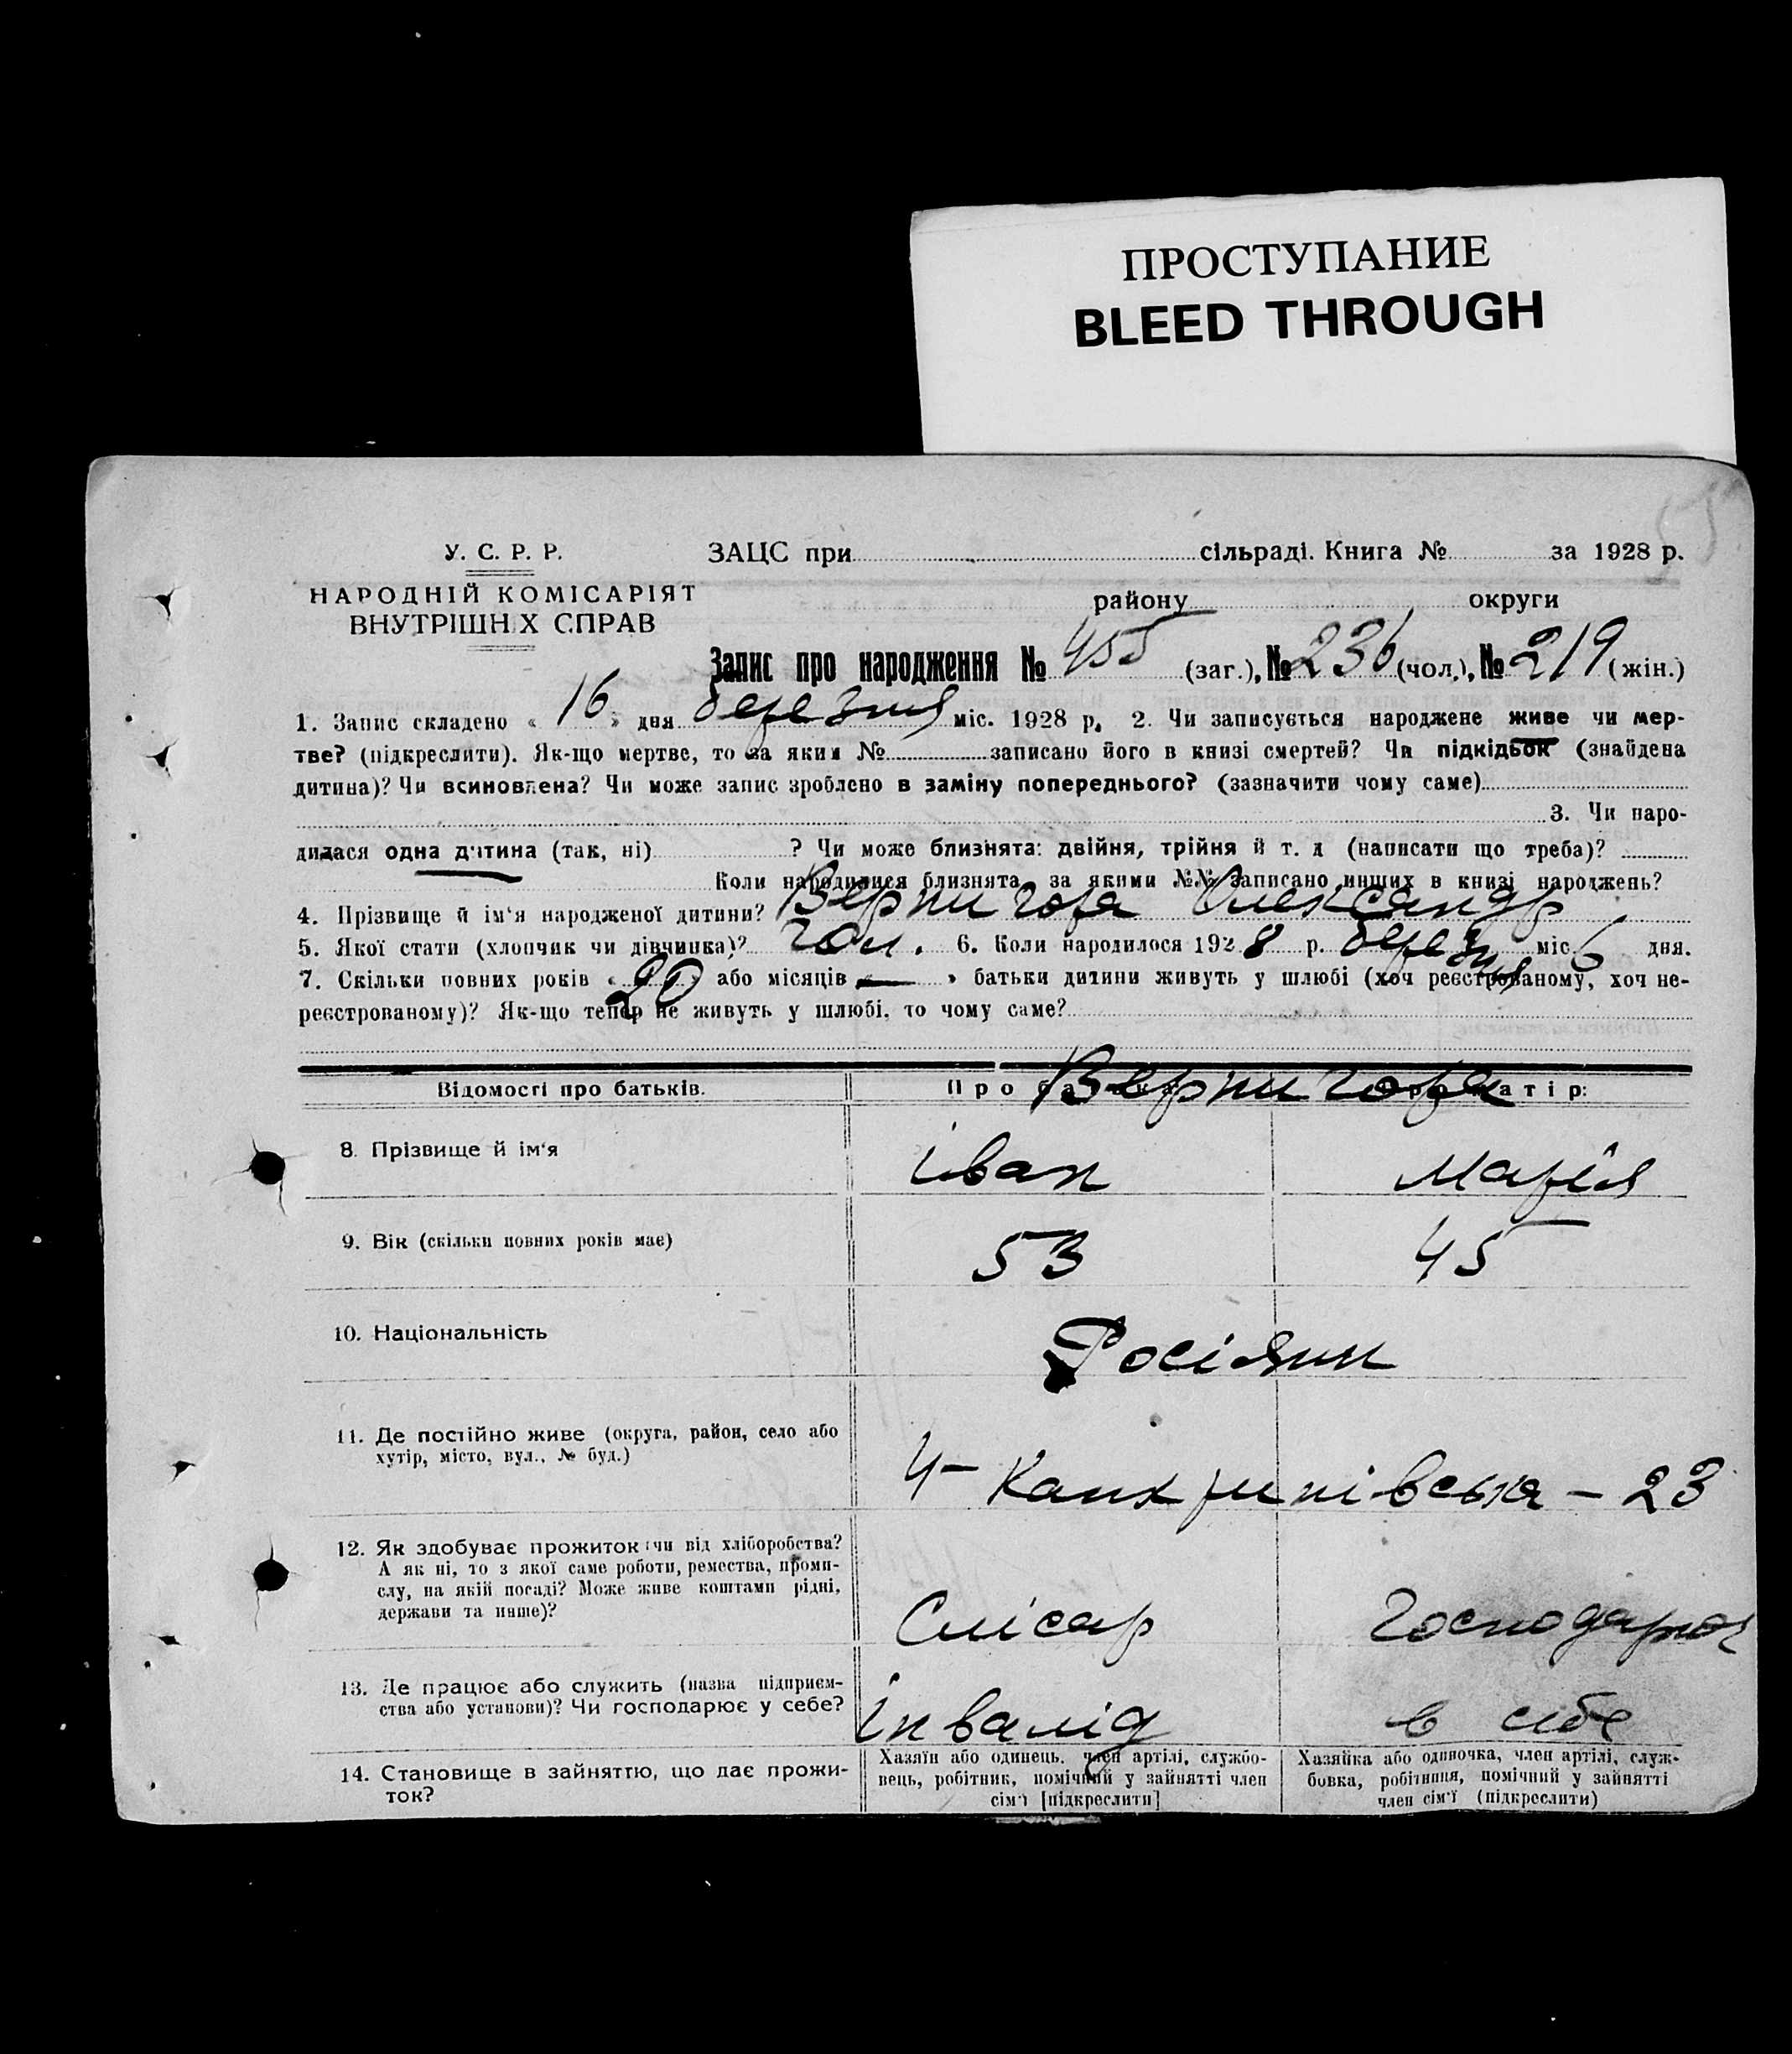 ПРОСТУПАНИЕ
BLEED THROUGH
У. С. Р. Р.
НАРОДНІЙ КОМІСАРІЯТ
ВНУТРІШНІХ СПРАВ
ЗАЦС при сільраді. Книга № за 1928 р.
району округи
Запис про народження № 455 (заг.), № 236 (чол.), № 219 (жін.)
1. Запис складено « 16 » дня березня міс. 1928 р. 2. Чи записується народжене живе чи мер-
тве? (підкреслити). Як-що мертве, то за яким № записано його в книзі смертей? Чи підкідьок (знайдена
дитина)? Чи всиновлена? Чи може запис зроблено в заміну попереднього? (зазначити чому саме)
3. Чи наро-
дилася одна дитина (так, ні) ? Чи може близнята: двійня, трійня й т. д (написати що треба)?
Коли народилися близнята, за якими №№ записано инших в книзі народжень?
4. Прізвище й ім'я народженої дитини? Вернигора Олександр
5. Якої стати (хлопчик чи дівчинка)? чол. 6. Коли народилося 1928 р. березня міс 6 дня.
7. Скільки повних років « 20 » або місяців « — » батьки дитини живуть у шлюбі (хоч реєстрованому, хоч не-
реєстрованому)? Як-що тепер не живуть у шлюбі, то чому саме?
Відомості про батьків. Про батька: Про матір:
Вернигора
8. Прізвище й ім'я Іван Марія
9. Вік (скільки повних років має) 53 45
10. Національність Росіяни
11. Де постійно живе (округа, район, село або
хутір, місто, вул., № буд.)
4- - 23
12. Як здобуває прожиток (чи від хліборобства?
А як ні, то з якої саме роботи, ремества, проми-
слу, на якій посаді? Може живе коштами рідні,
держави та инше)?
Слісар
13. Де працює або служить (назва підприєм-
ства або установи)? Чи господарює у себе?
Інвалід в себе
14. Становище в зайняттю, що дає прожи-
ток?
Хазяїн або одинець, член артілі, службо-
вець, робітник, помічний у зайнятті член
сім'ї [підкреслити]
Хазяйка або одиночка, член артілі, служ-
бовка, робітниця, помічний у зайнятті
член сім'ї (підкреслити)